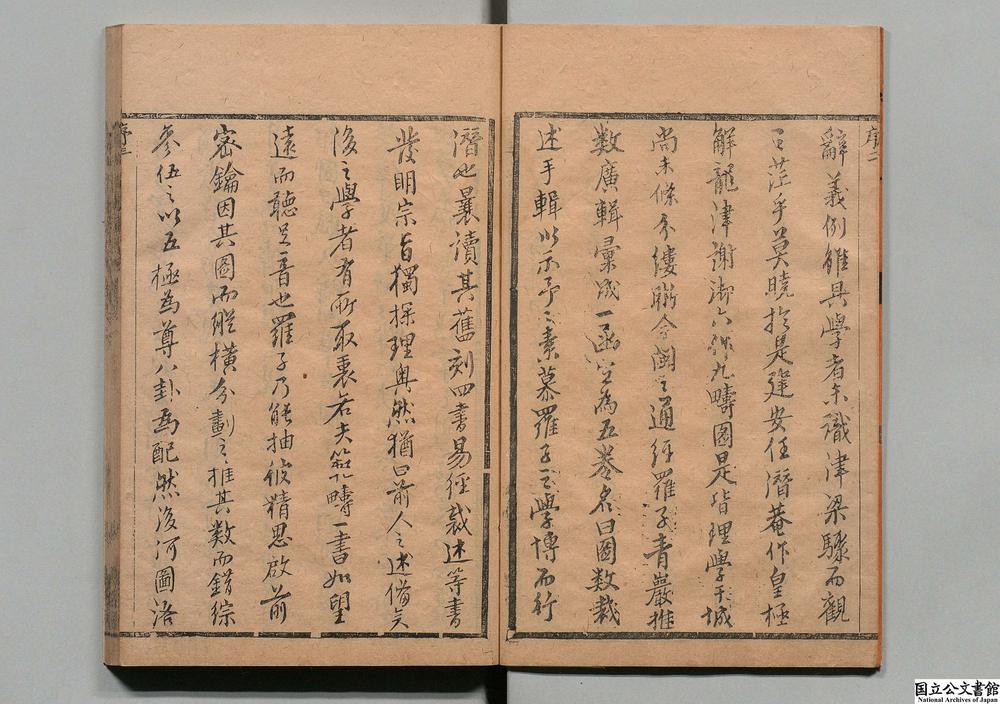 序二
辭義例雖具學者未識津梁驟而觀
之茫乎莫曉於是建安任潛菴作皇極
解龍津謝沖六作九疇圖是皆理學干城
尚未條分縷晰今閩之通經羅子青巖推
數廣輯彙成一函定為五卷名曰圖數裁
述手輯以示予予素慕羅子之學博而行
潛也曩讀其舊刻四書易經裁述等書
發明宗旨獨探理奧然猶曰前人之述備矣
後之學者有所取衷若夫範疇一書如望
遠而聽足音也羅子乃能抽彼精思啟前
密鑰因其圖而縱橫分劃之推其數而錯綜
參伍之以五極為尊八卦為配然後河圖洛
国立公文書館
National Archives of Japan